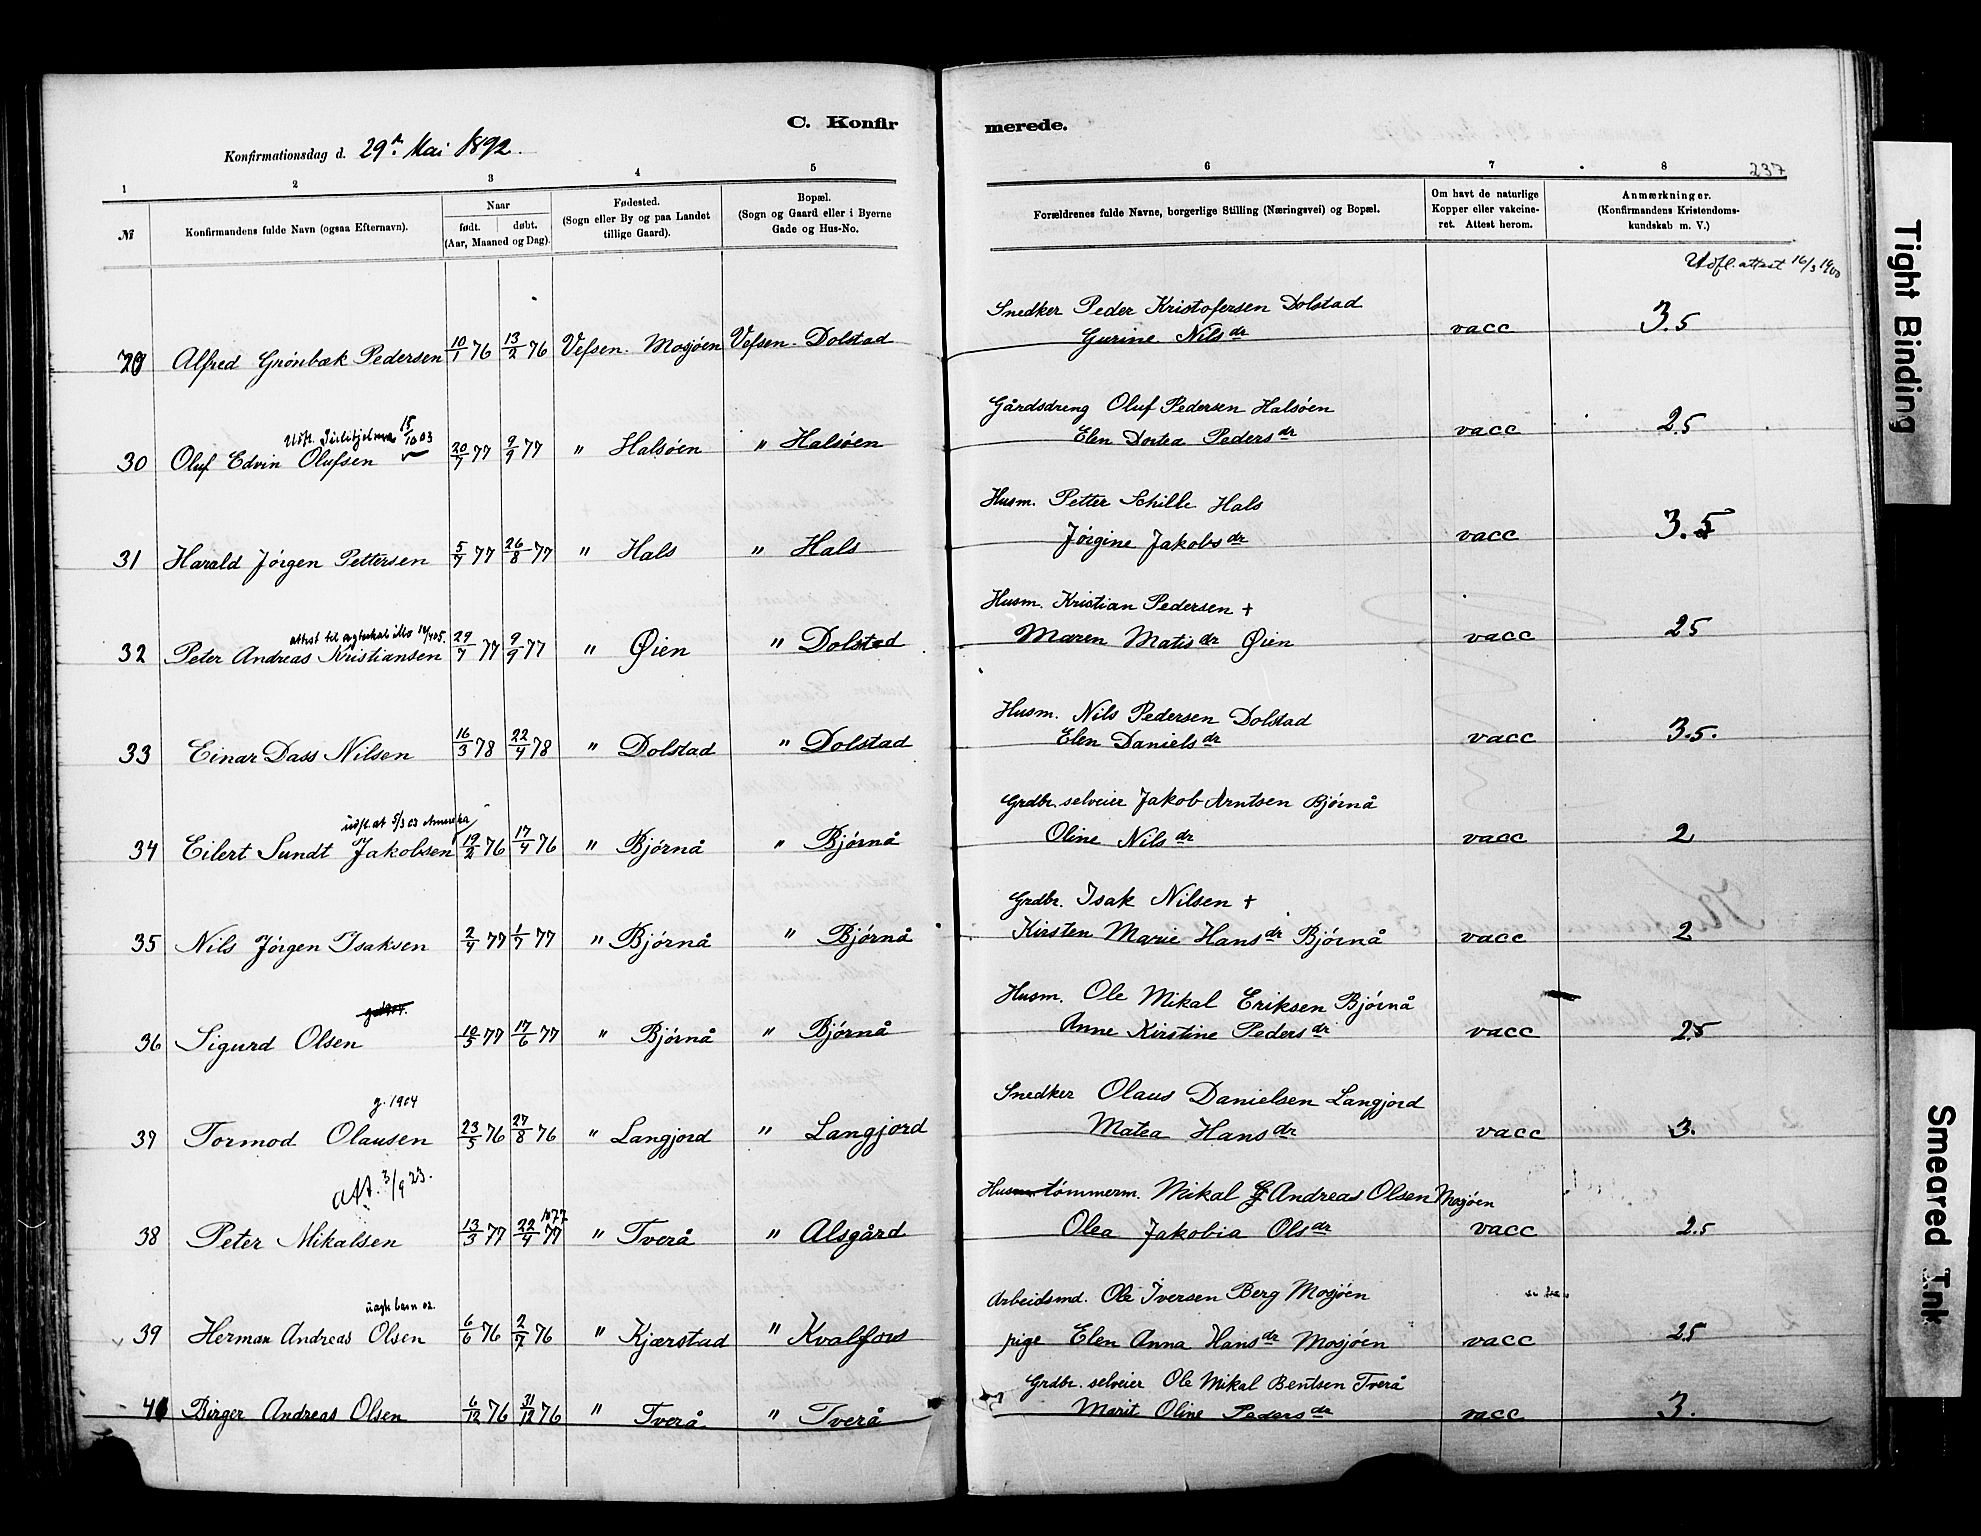 C. Konfirmerede.
Konfirmationsdag d. 29de Mai 1892.
237
1 2 3 4 5 6 7 8
№ Konfirmandens fulde Navn (ogsaa Efternavn). Naar født. døbt. (Aar, Maaned og Dag). Fødested. (Sogn eller By og paa Landet tillige Gaard). Bopæl. (Sogn og Gaard eller i Byerne Gade og Hus-No. Forældrenes fulde Navne, borgerlige Stilling (Næringsvei) og Bopæl. Om havt de naturlige Kopper eller vakcineret. Attest herom. Anmærkninger. (Konfirmandens Kristendomskundskab m. V.)
Udfl. attest 16/3 1900
Snedker Peder Kristofersen Dolstad
29 Alfred Grönbæk Pedersen 10/1 76 13/2 76 Vefsen. Mosjöen Vefsen. Dolstad Gurine Nilsdr vacc 3.5
Udfl. Sulitjelma 15/10 03
Gårdsdreng Oluf Pedersen Halsöen
30 Oluf Edvin Olufsen 20/7 77 9/9 77 " Halsöen " Halsöen Elen Dortea Pedersdr vacc 2.5
Husm. Petter Schille Hals
31 Harald Jörgen Pettersen 5/7 77 26/8 77 " Hals " Hals Jörgine Jakobsdr vacc 3.5
attest til
Husm. Kristian Pedersen +
32 Peter Andreas Kristiansen 29/7 77 9/9 77 " Øien " Dolstad Maren Matisdr Øien vacc 25
Husm. Nils Pedersen Dolstad
33 Einar Dass Nilsen 16/3 78 22/4 78 " Dolstad " Dolstad Elen Danielsdr vacc 3.5.
udfl. at 5/3 03 Amerika
Grdbr. selveier Jakob Arntsen Björnå
34 Eilert Sundt Jakobsen 19/2 76 17/4 76 " Björnå " Björnå Oline Nilsdr vacc 2
Grdbr. Isak Nilsen +
35 Nils Jörgen Isaksen 2/4 77 1/7 77 " Björnå " Björnå Kirsten Marie Hansdr Björnå vacc 2
Husm. Ole Mikal Eriksen Björnå
36 Sigurd Olsen 10/5 77 17/6 77 " Björnå " Björnå Anne Kirstine Pedersdr vacc 2.5
g. 1904
Snedker Olaus Danielsen Langjord
37 Tormod Olausen 23/5 76 27/8 76 " Langjord " Langjord Matea Hansdr vacc 3.
Att. 3/9 23.
Husm tömmerm. Mikal Andreas Olsen Mosjöen
1877
38 Peter Mikalsen 13/3 77 22/4 77 " Tverå " Alsgård Olea Jakobia Olsdr vacc 2.5
uægte barn
Arbeidsmd. Ole Iversen Berg Mosjöen
39 Herman Andreas Olsen 6/6 76 2/7 76 " Kjærstad " Kvalfors pige Elen Anna Hansdr Mosjöen vacc 25
Grdbr. selveier Ole Mikal Bentsen Tverå
40 Birger Andreas Olsen 6/12 76 31/12 76 " Tverå " Tverå Marit Oline Pedersdr vacc 3.
Tight Binding
Smeared Ink